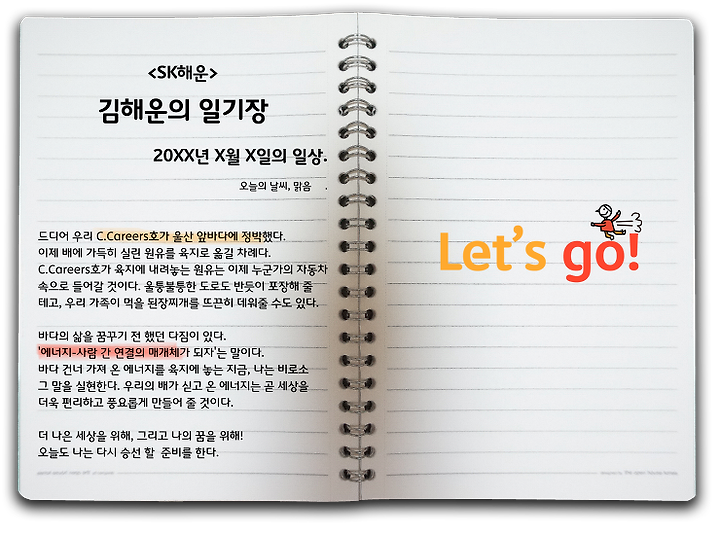 <SK해운>
김해운의 일기장
20XX년 X월 X일의 일상.
오늘의 날씨, 맑음 .
드디어 우리 C.Careers호가 울산 앞바다에 정박했다.
이제 배에 가득히 실린 원유를 육지로 옮길 차례다.
C.Careers호가 육지에 내려놓는 원유는 이제 누군가의 자동차
속으로 들어갈 것이다. 울퉁불퉁한 도로도 반듯이 포장해 줄
테고, 우리 가족이 먹을 된장찌개를 뜨끈히 데워줄 수도 있다.
바다의 삶을 꿈꾸기 전 했던 다짐이 있다.
'에너지-사람 간 연결의 매개체가 되자'는 말이다.
바다 건너 가져 온 에너지를 육지에 놓는 지금, 나는 비로소
그 말을 실현한다. 우리의 배가 싣고 온 에너지는 곧 세상을
더욱 편리하고 풍요롭게 만들어 줄 것이다.
더 나은 세상을 위해, 그리고 나의 꿈을 위해!
오늘도 나는 다시 승선 할 준비를 한다.
Let's go!